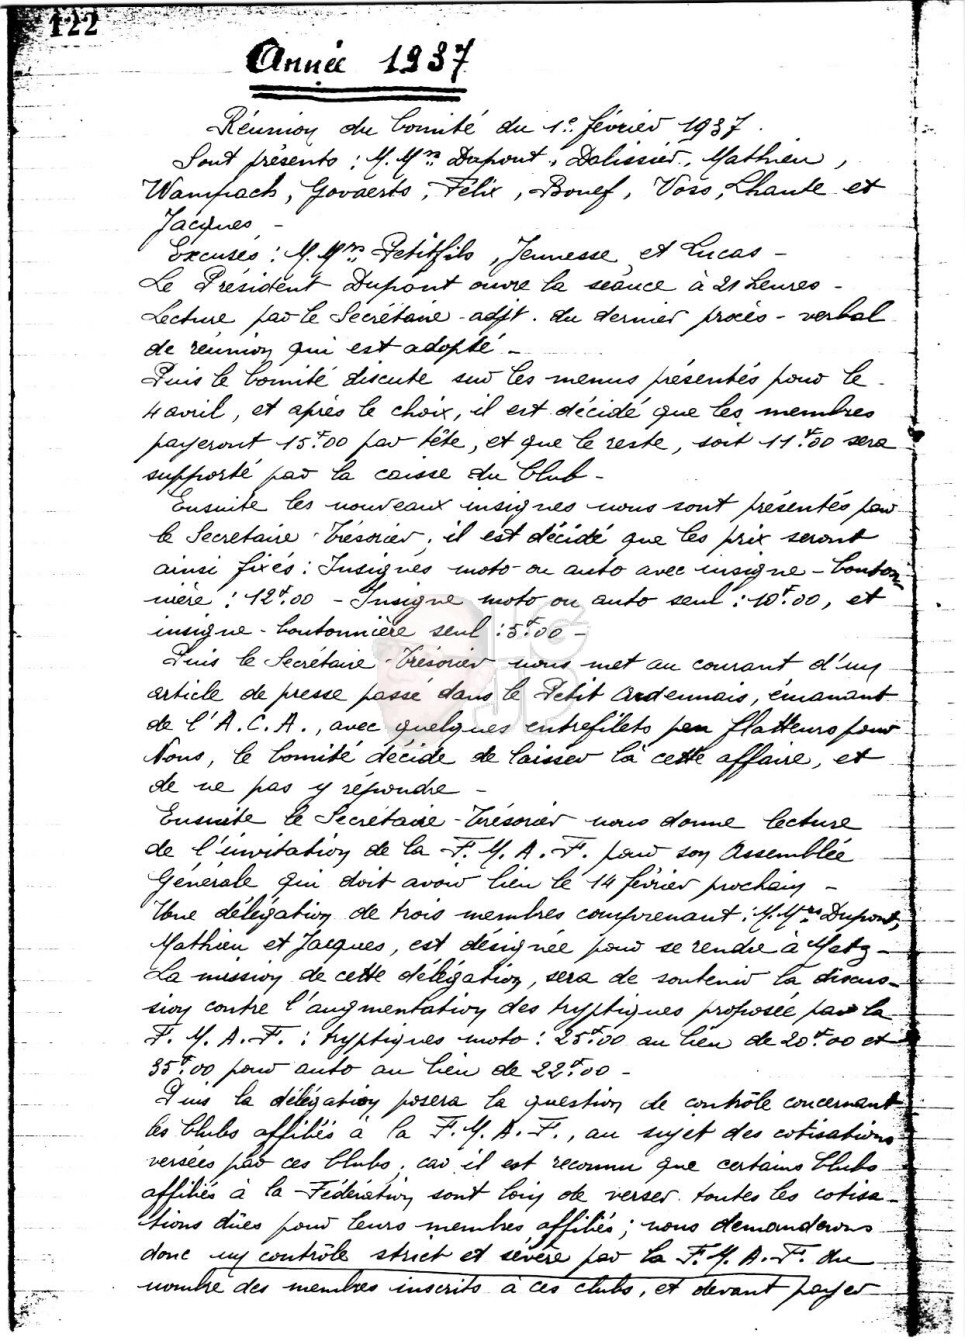 122
Année 1937
Réunion du Comité du 1er février 1937.
Sont présents : M.Mrs Dupont, Dalissier, Mathieu,
Wampach, Govaerts, Félix, Bouef, Voss, Lhante et
Jacques -
Excusés : M.Mrs Petitfils, Jeunesse, et Lucas -
Le Président Dupont ouvre la séance à 21 heures -
Lecture par le Secrétaire-adjt. du dernier procès-verbal
de réunion qui est adopté -
Puis le Comité discute sur les menus présentés pour le
4 avril, et après le choix, il est décidé que les membres
payeront 15f.00 par tête, et que le reste, soit 11f.00 sera
supporté par la caisse du Club -
Ensuite les nouveaux insignes nous sont présentés par
le Secrétaire-Trésorier, il est décidé que les prix seront
ainsi fixés : Insignes moto ou auto avec insigne-bouton-
nière : 12f.00 - Insigne moto ou auto seul : 10f.00, et
insigne-boutonnière seul : 5f.00 -
HG
JD
Puis le Secrétaire-Trésorier nous met au courant d'un
article de presse passé dans le Petit Ardennais, émanant
de l'A.C.A., avec quelques entrefilets peu flatteurs pour
Nous, le Comité décide de laisser là cette affaire, et
de ne pas y répondre -
Ensuite le Secrétaire-Trésorier nous donne lecture
de l'invitation de la F.M.A.F. pour son Assemblée
Générale qui doit avoir lieu le 14 février prochain -
Une délégation de trois membres comprenant : M.Mrs Dupont,
Mathieu et Jacques, est désignée pour se rendre à Metz -
La mission de cette délégation, sera de soutenir la discus-
sion contre l'augmentation des tryptiques proposée par la
F.M.A.F. : tryptiques moto : 25f.00 au lieu de 20f.00 et
35f.00 pour auto au lieu de 22f.00 -
Puis la délégation posera la question de contrôle concernant
les Clubs affiliés à la F.M.A.F., au sujet des cotisations
versées par ces Clubs, car il est reconnu que certains Clubs
affiliés à la Fédération sont loin de verser toutes les cotisa-
tions dûes pour leurs membres affiliés ; nous demanderons
donc un contrôle strict et sévère par la F.M.A.F. du
nombre des membres inscrits à ces clubs, et devant payer